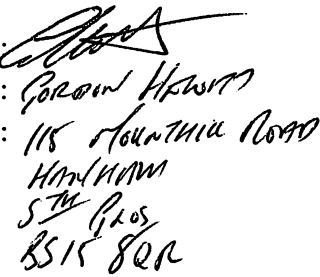 :
: GORDON HEWITT
: 115 MOUNTHILL ROAD
HANHAM
STH GLOS
BS15 8QR